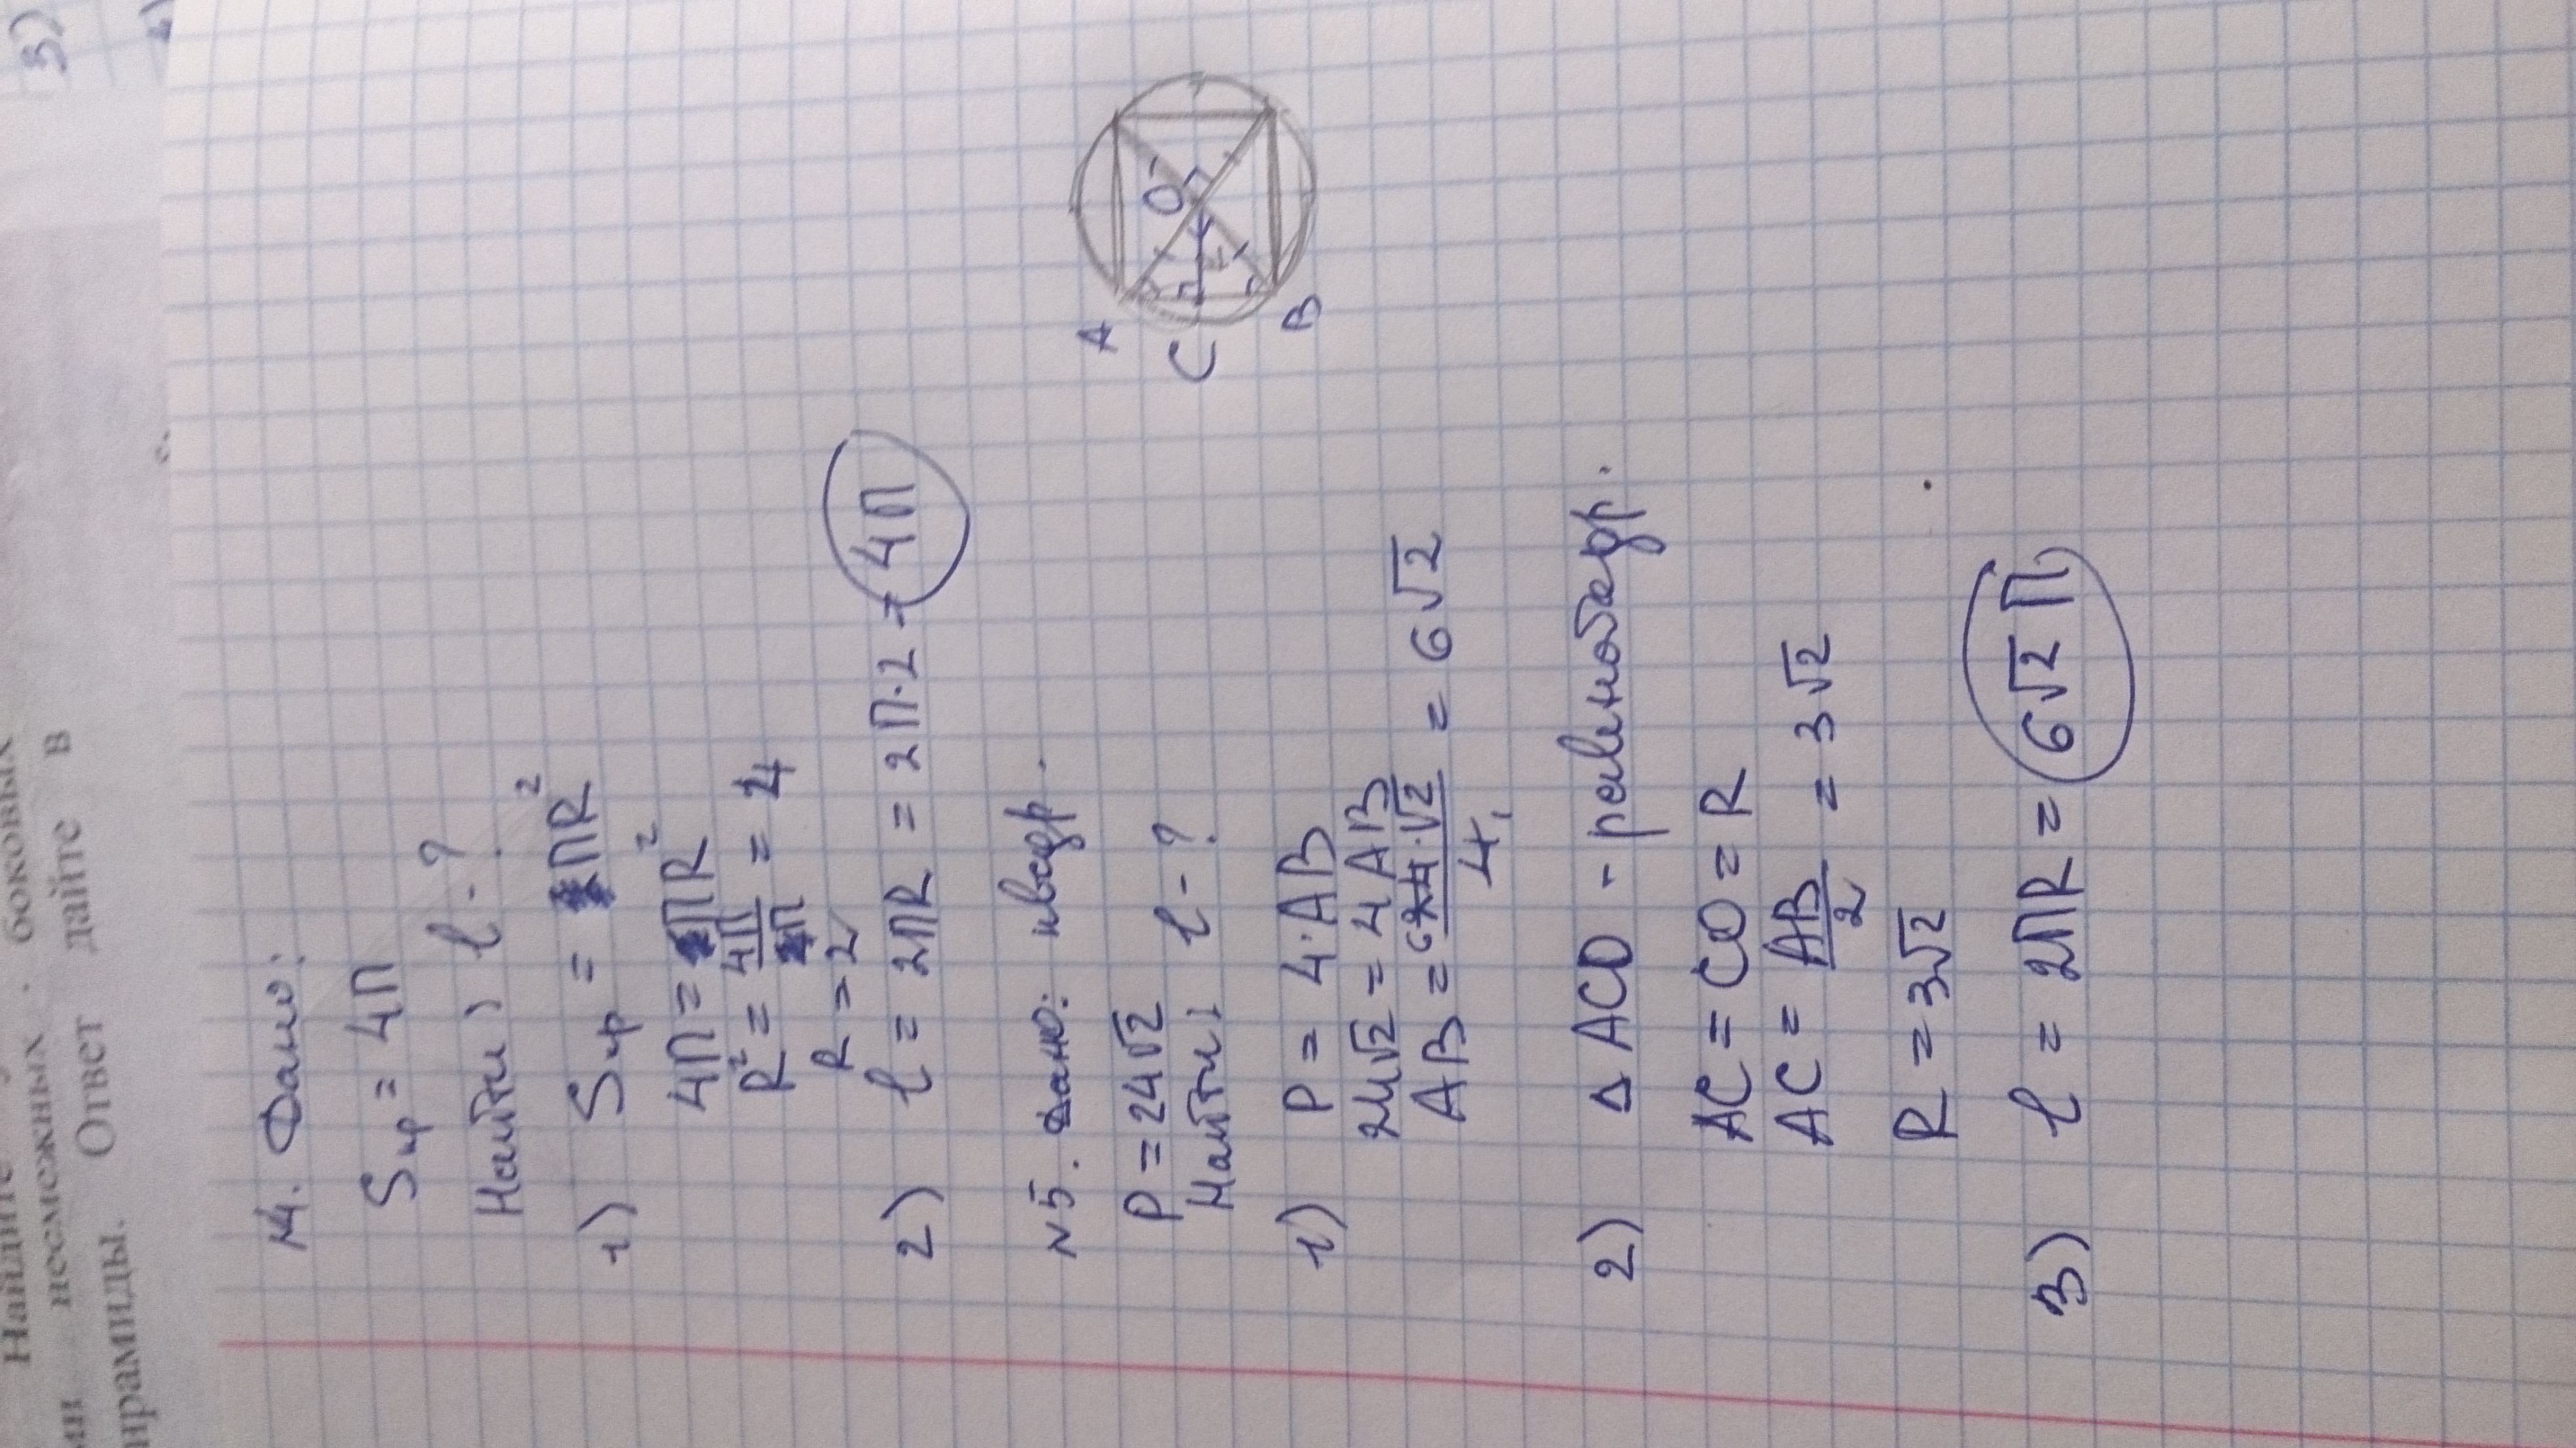 Найдите
боковых
ми несмежных
дайте в
пирамиды. Ответ
3)
№4. Дано:
Sкр = 4П
Найти: l - ?
1) Sкр = ПR²
4П = ПR²
R² = 4П/П = 4
R = 2
2) l = 2ПR = 2П·2 = 4П
N5. Дано: квадр.
P = 24√2
Найти: l - ?
1) P = 4·AB
24√2 = 4AB
AB = 24·√2/4 = 6√2
2) Δ ACO - равнобедр.
AC = CO = R
AC = AB/2 = 3√2
R = 3√2
3) l = 2ПR = 6√2 П
A
C
B
O